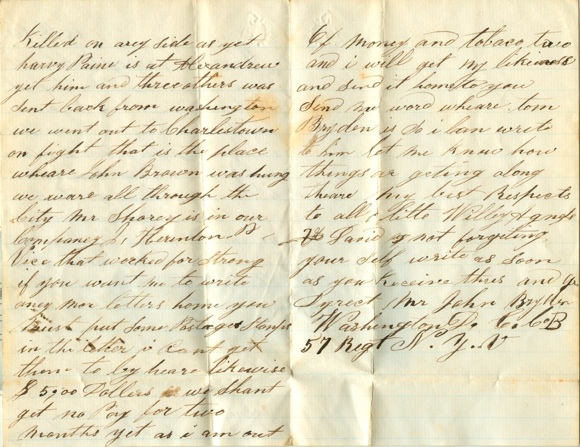 Killed on arey side as yet
harvy Paine is at Alexandrew
yet him and three others was
sent back from washington
we went out to Charlestown
on fight that is the place
wheare John Brown was hung
we ware all through the
City Mr Shorey is in our
Companey S, Herinton B
Vice that worked for Strong
if you want me to write
aney more letters home you
Must put some Postages Stamps
in the leter i cant get
them to by heare likewise
$ 5,00 Dollers we shant
get no Pay for two
months yet as i am out
Of money and tobaco, two
and i will get my likeness
and send it home to you
Send me word wheare tom
Bryden is So i Can write
to him let me know how
things ar geting along
theare my best Respects
to all Little Willey
David not forgeting
your Self write as Soon
as you Receive thies and
Dyrect Mr John Bryden
Washington D. C. Co B
57 Regt N. Y. V